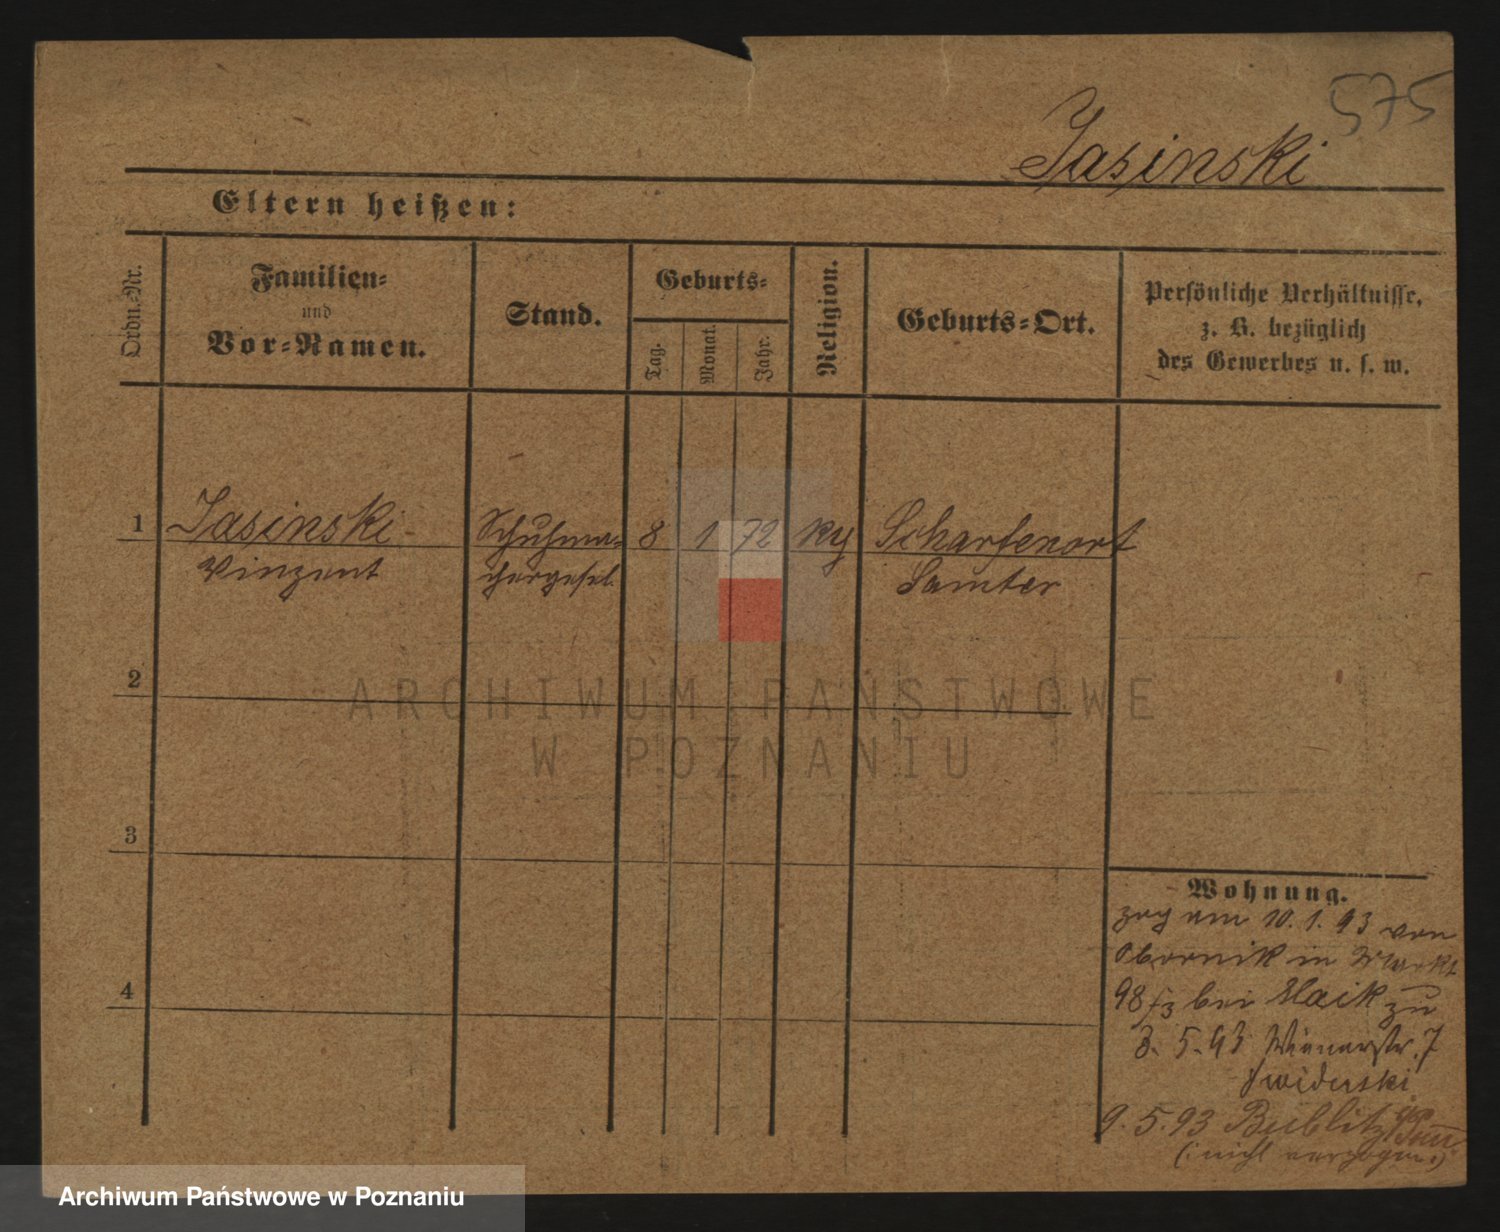 575
Jasinski
Eltern heißen:
Ordn.-Nr.
Familien-
und
Vor-Namen.
Stand.
Geburts-
Tag.
Monat.
Jahr.
Religion.
Geburts-Ort.
Persönliche Verhältnisse,
z. B. bezüglich
des Gewerbes u. s. w.
1 Jasinski Schuhma- 8 1 72 Scharfenort
Vinzent chergesel. Samter
2
ARCHIWUM PAŃSTWOWE
W POZNANIU
3
Wohnung.
zog am 10. 1. 93 von
Obornik in Markt
4
98 bei Maik zu
3. 5. 93 Wienerstr. 7
Swiderski
9. 5. 93 Bublitz Pom
(: nicht verzogen :)
Archiwum Państwowe w Poznaniu